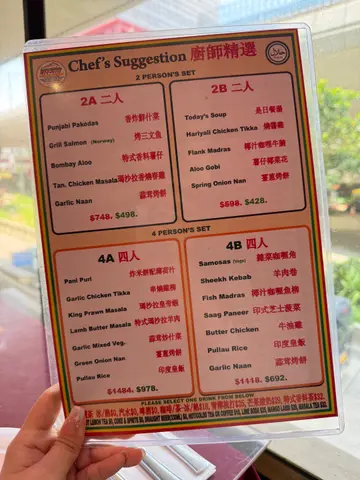 Chef's Suggestion 廚師精選
2 PERSON'S SET
2A 二人
Punjabi Pakodas 香炸鮮什菜
Grill Salmon (Norway) 烤三文魚
Bombay Aloo 特式香料薯仔
Tan. Chicken Masala 瑪沙拉香燒雞
Garlic Naan 蒜茸烤餅
$748. $498.
2B 二人
Today's Soup 是日餐湯
Hariyali Chicken Tikka 燒雞
Flank Madras 椰汁咖喱牛腩
Aloo Gobi 薯仔椰菜花
Spring Onion Naan 薑蔥烤餅
$598. $428.
4 PERSON'S SET
4A 四人
Pani Puri 炸米餅配薄荷汁
Garlic Chicken Tikka 串燒雞
King Prawn Masala 瑪沙拉皇帝蝦
Lamb Butter Masala 特式瑪沙拉羊肉
Garlic Mixed Veg. 蒜茸炒什菜
Green Onion Nan 薑蔥烤餅
Pullau Rice 印度皇飯
$1484. $978.
4B 四人
Samosas (Vege) 雜菜咖喱角
Sheekh Kebab 羊肉卷
Fish Madras 椰汁咖喱魚
Saag Paneer 印式芝士菠菜
Butter Chicken 牛油雞
Pullau Rice 印度皇飯
Garlic Naan 蒜茸烤餅
$1118. $692.
PLEASE SELECT ONE DRINK FROM BELOW